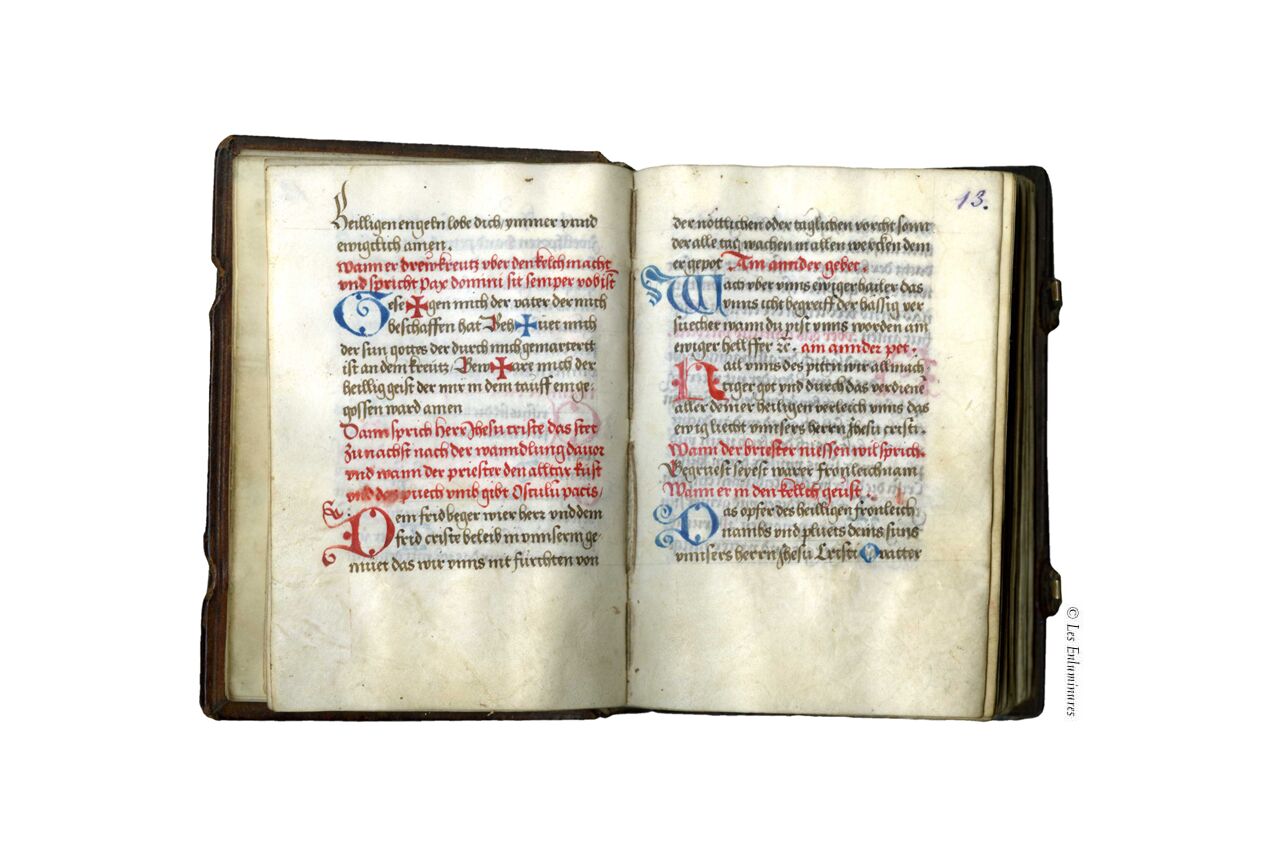 heilligen engeln lobe dich ymmer vnnd
ewigklich amen.
wann er drew kreutz vber den kelch macht
vnd spricht pax domini sit semper vobist
Gese✠gen mich der vater der mich
beschaffen hat Beh✠üet mich
der sun gottes der durch mich gemartertt
ist an dem kreutz Bew✠are mich der
heillig geist der mir in dem tauff ein ge-
gossen ward amen
Dann sprich herr Jhesu criste das stet
zu nachst nach der wanndlung dauor
vnd wann der priester den alltar kust
vnd das puech vmb gibt Osculu pacis
Dem frid beger wier herz vnd dem
frid criste beleib in vnnserm ge-
müet das wir vnns nit fürchten von
13.
der nöttlichen oder täglichen vorcht sonnt
der alle tag wachen in allen wercken dem
er gepot. Am annder gebet.
Wach vber vnns ewiger hailer das
vnns icht begreiff der hässig ver
suecher wann du pist vnns worden ain
ewiger hellffer ꝛc. am annder pet.
all vnns des pittn wir allmach
tiger got vnd durch das verdiene
aller deiner heiligen verleich vnns das
ewig liecht vnnsers herrn Jhesu cristi.
Wann der briester niessen wil sprich.
Begruest seyest warer fronleichnam
Wann er in den kellch geust.
Das opfer des heilligen fronleich
nambs vnd pluets deins suns
vnnsers herrn Jhesu Cristi O vatter
© Les Enluminures